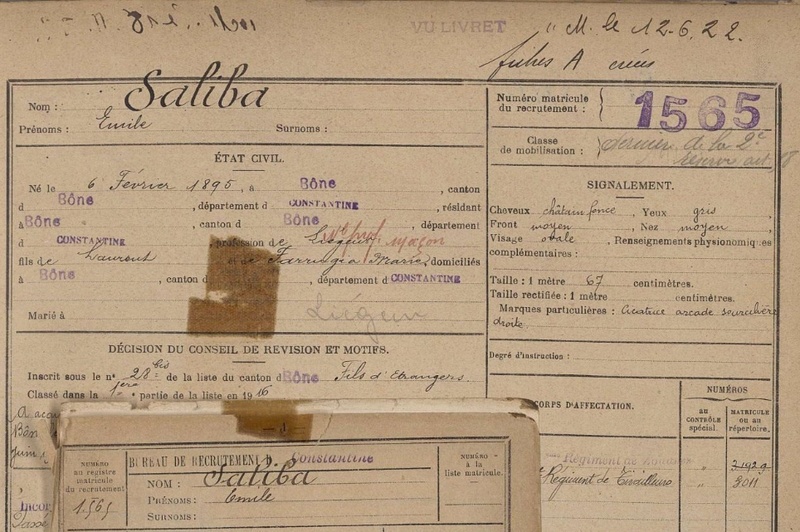 VU LIVRET
" M. le 12.6.22.
fiches A créées
Nom : Saliba
Prénoms : Emile Surnoms :
Numéro matricule
du recrutement : 1565
Classe
de mobilisation : dernier de la 2e
réserve
ÉTAT CIVIL.
Né le 6 Février 1895, à Bône, canton
d Bône, département d CONSTANTINE, résidant
à Bône, canton d Bône, département
d CONSTANTINE, profession de Liégeur maçon
fils de Laurent et de Farrugia Marie, domiciliés
à Bône, canton d, département d CONSTANTINE
Marié à Liégeur
SIGNALEMENT.
Cheveux châtain foncé, Yeux gris,
Front moyen, Nez moyen
Visage ovale, Renseignements physionomiques
complémentaires :
Taille : 1 mètre 67 centimètres.
Taille rectifiée : 1 mètre centimètres.
Marques particulières : Cicatrice arcade sourcilière
droite.
Degré d'instruction :
DÉCISION DU CONSEIL DE REVISION ET MOTIFS.
Inscrit sous le n° 28 bis de la liste du canton d Bône Fils d'Etrangers.
Classé dans la 1ère partie de la liste en 1916
CORPS D'AFFECTATION.
NUMÉROS
au
CONTRÔLE
spécial.
MATRICULE
ou au
répertoire.
Régiment de Zouaves " 21929
Régiment de Tirailleurs " 3011
Incor
NUMÉRO
au registre
matricule
du recrutement
1.565
BUREAU DE RECRUTEMENT D Constantine
NOM : Saliba
PRÉNOMS : Emile
SURNOMS :
NUMÉRO
à la
liste matricule.